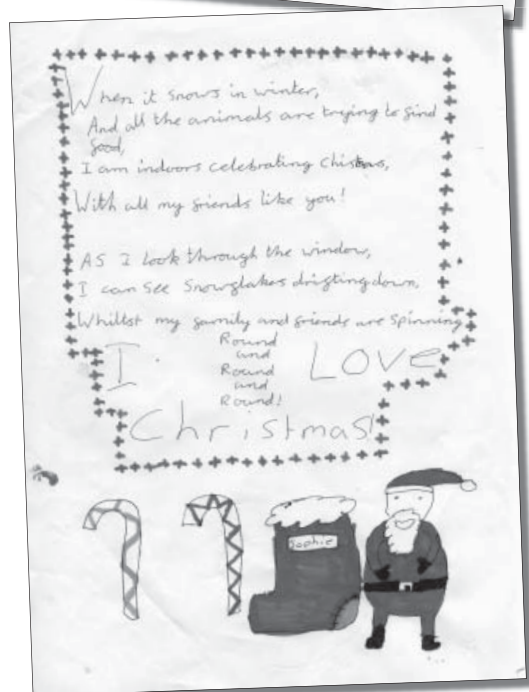 When it snows in winter,
And all the animals are trying to find
food,
I am indoors celebrating Chistmas,
With all my friends like you!
AS I look through the window,
I can see Snowflakes drifting down,
Whillst my family and friends are Spinning
Round
and
Round
and
Round!
I LOVE
Christmas!
Sophie